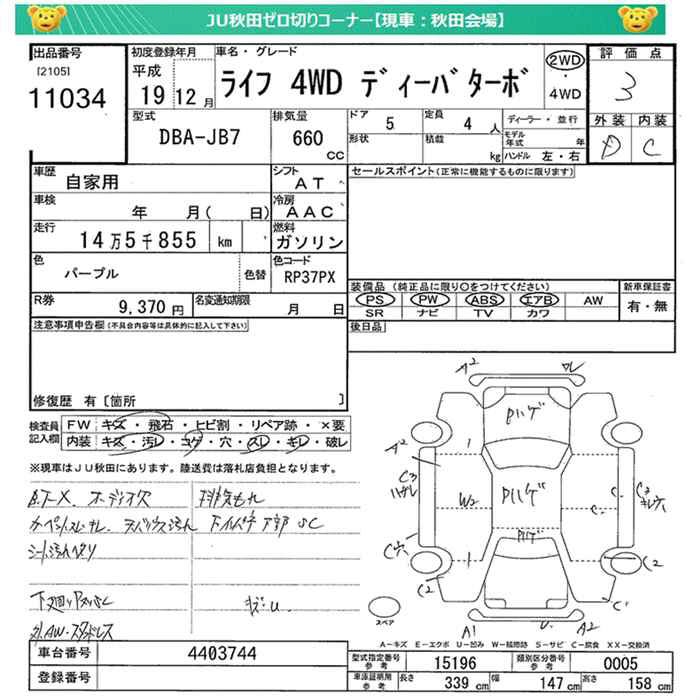 JU秋田ゼロ切りコーナー【現車：秋田会場】
出品番号
[2105]
11034
初度登録年月
平成
19 12 月
車名・グレード
ライフ 4WD ディーバターボ
2WD
・
4WD
評価点
3
外装 内装
D C
型式
DBA-JB7
排気量
660
CC
ドア
5
定員
4 人
形状
積載
kg
ディーラー・並行
モデル年式 年
ハンドル 左・右
車歴
自家用
シフト
AT
車検
年 月( 日)
冷房
AAC
走行
14万5千855 km
燃料
ガソリン
色
パープル
色替
色コード
RP37PX
R券
9,370 円
名変通知期限
月 日
セールスポイント(正常に機能するものに限ります)
装備品 (純正品に限り○をつけてください)
PS PW ABS エアB AW
SR ナビ TV カワ
新車保証書
有・無
注意事項申告欄(不具合内容等は具体的に記入して下さい)
後日品
修復歴 有[箇所 ]
検査員記入欄
FW キズ・飛石・ヒビ割・リペア跡・×要
内装 キズ・汚レ・コゲ・穴・スレ・キレ・破レ
※現車はJU秋田にあります。陸送費は落札店負担となります。
排気もれ
シート汚れ
A2
A2
W2
C3
C2
C2
C1
A1
U
A2
スペア
A-キズ E-エクボ U-凹み W-補修跡 S-サビ C-腐食 XX-交換済
車台番号
4403744
登録番号
型式指定番号
参考
15196
類別区分番号
参考
0005
車庫証明用
参考
長さ
339 cm
幅
147 cm
高さ
158 cm